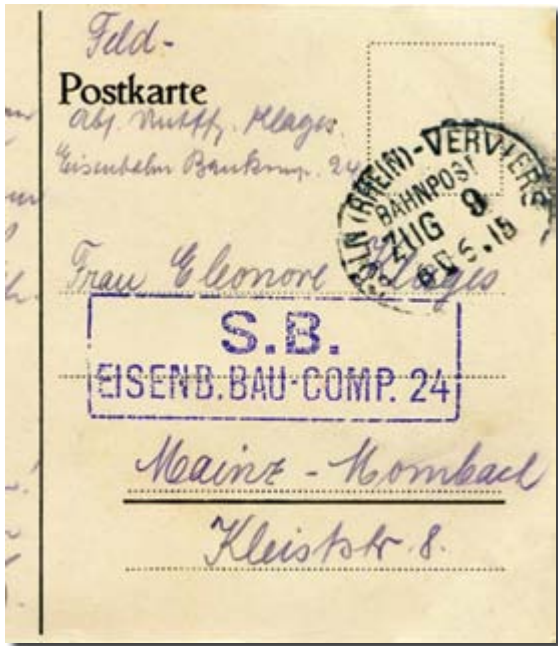 Feld-
Postkarte
Abs. Klages.
Eisenbahn Baukomp. 24
CÖLN (RHEIN)-VERVIERS
BAHNPOST
ZUG 9
6.15
Frau Eleonore Klages
S.B.
EISENB.BAU-COMP. 24
Mainz - Mombach
Kleiststr. 8.